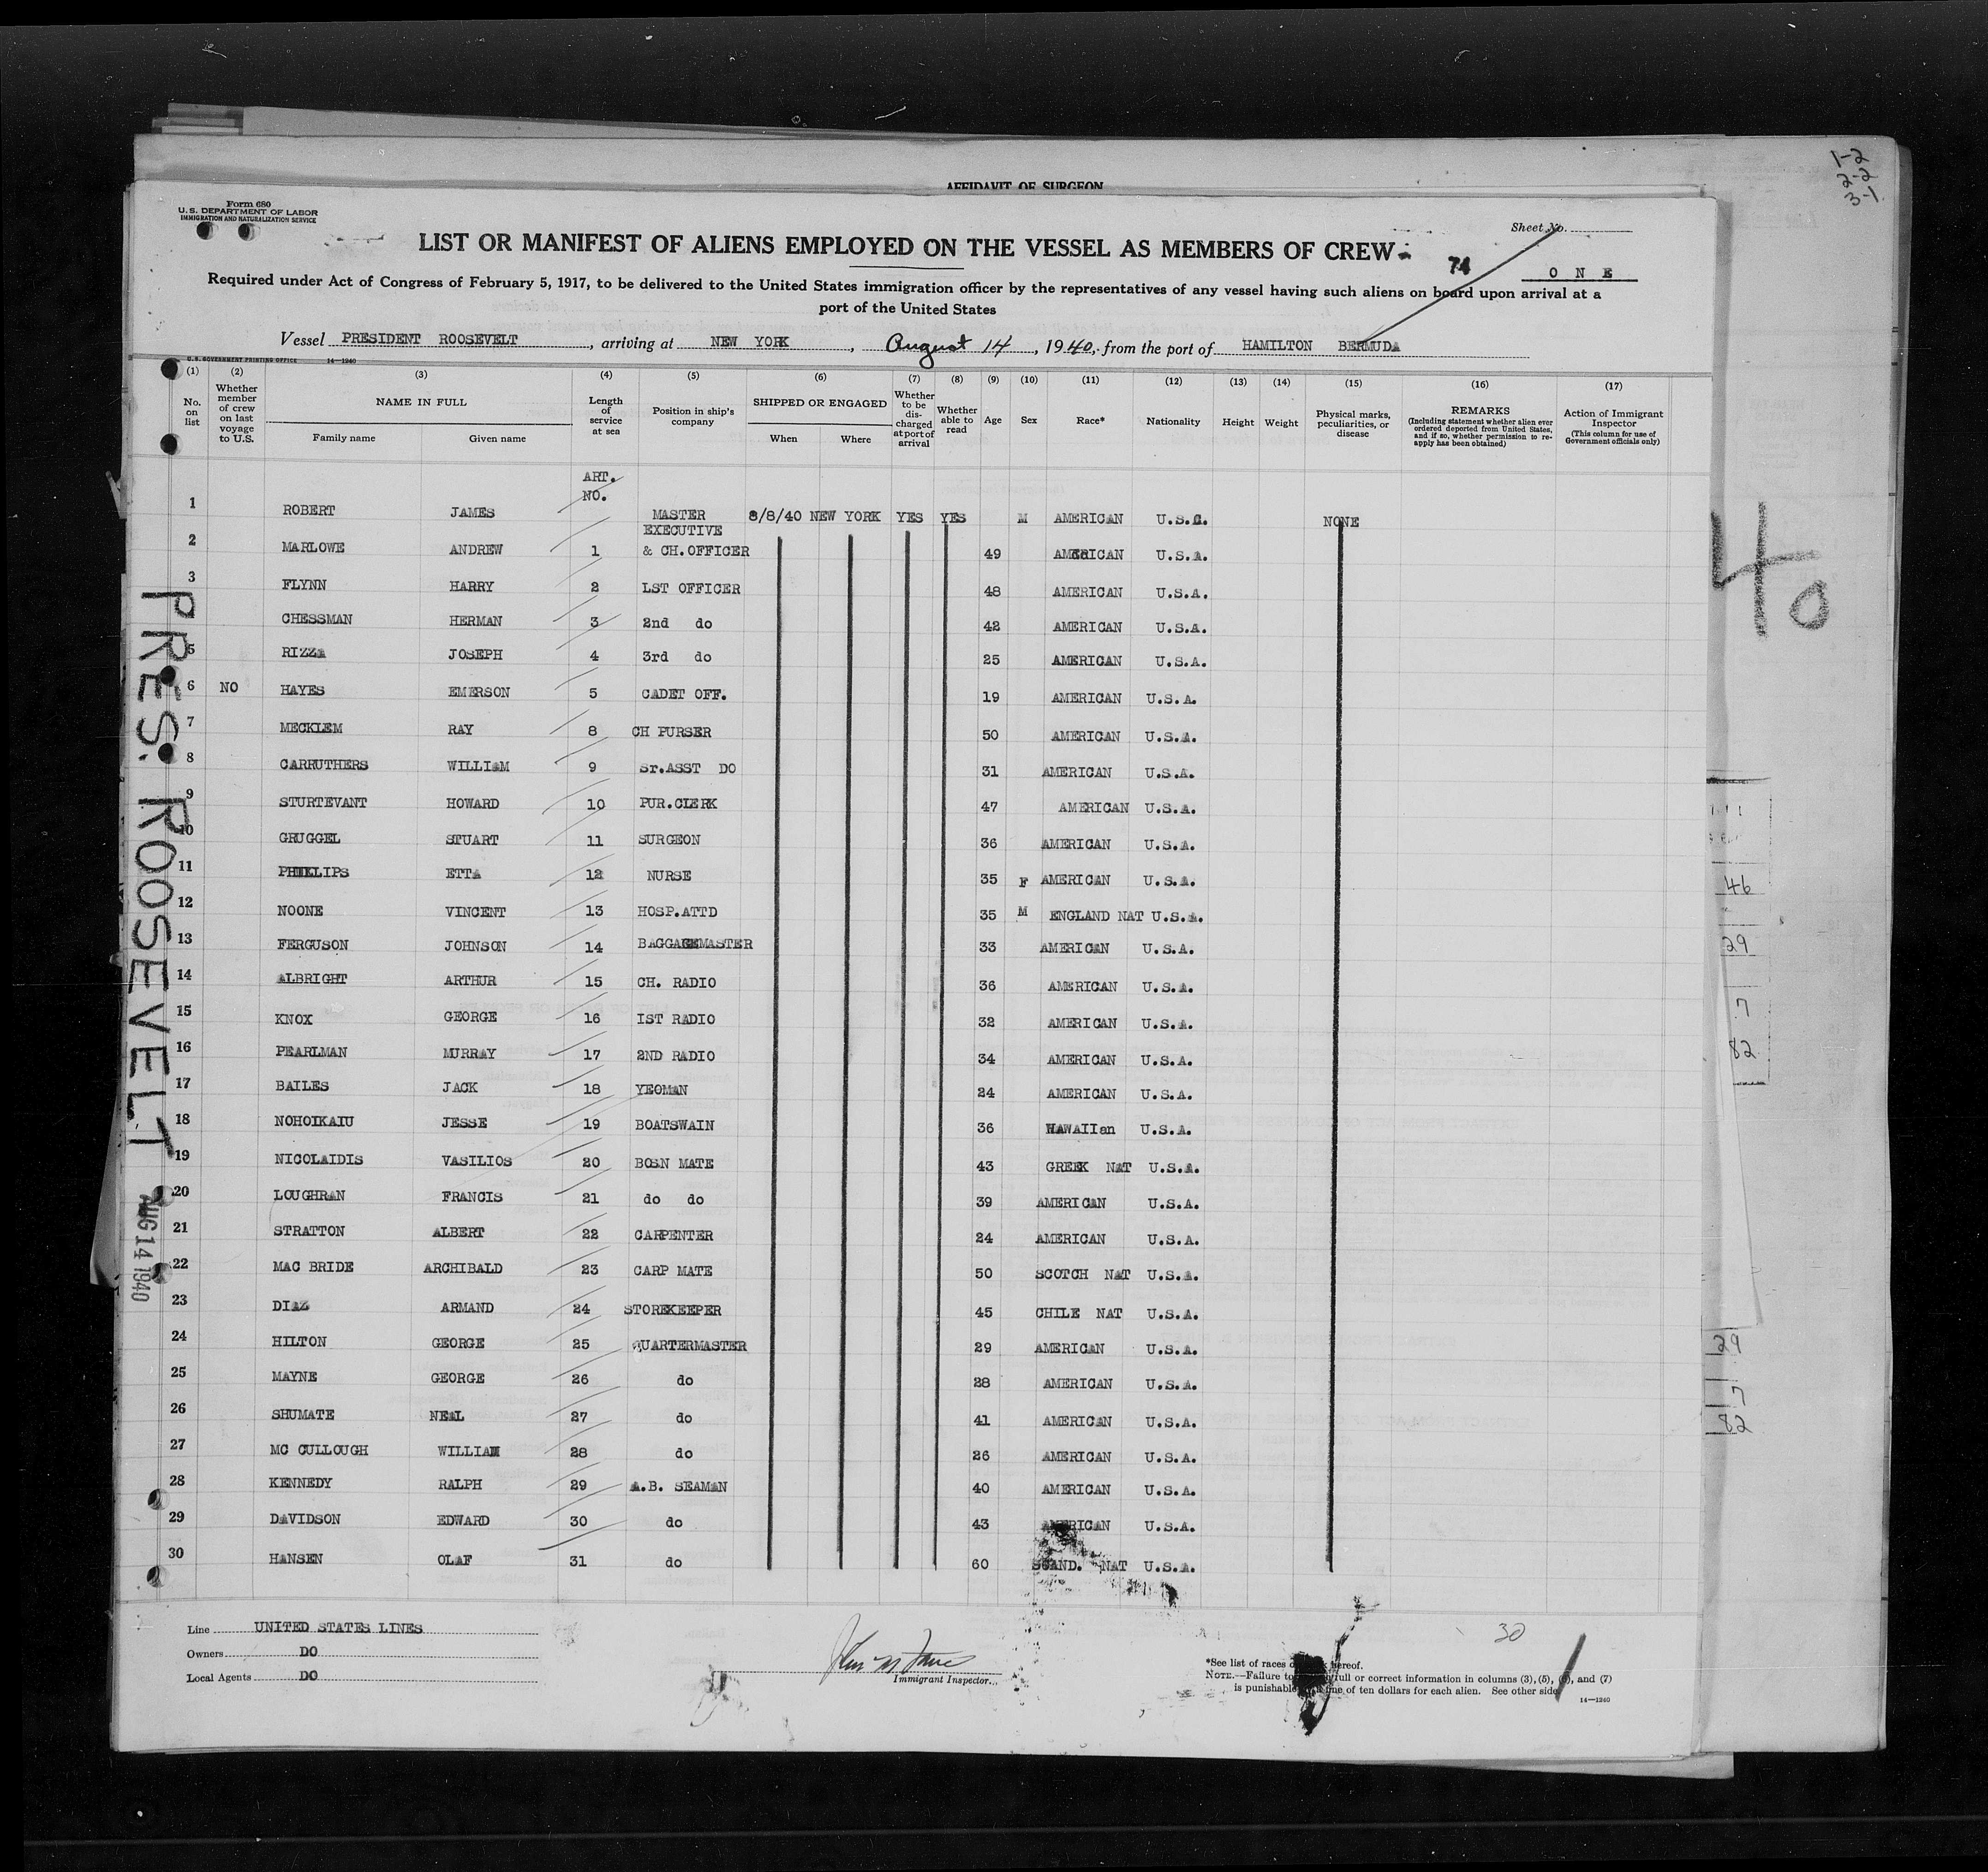 AFFIDAVIT OF SURGEON
1-2
2-2
3-1
Form 680
U. S. DEPARTMENT OF LABOR
IMMIGRATION AND NATURALIZATION SERVICE
Sheet No.
LIST OR MANIFEST OF ALIENS EMPLOYED ON THE VESSEL AS MEMBERS OF CREW
74
O N E
Required under Act of Congress of February 5, 1917, to be delivered to the United States immigration officer by the representatives of any vessel having such aliens on board upon arrival at a
port of the United States
Vessel PRESIDENT ROOSEVELT, arriving at NEW YORK, August 14, 1940, from the port of HAMILTON BERMUDA
U. S. GOVERNMENT PRINTING OFFICE 14-1240
(1) (2) (3) (4) (5) (6) (7) (8) (9) (10) (11) (12) (13) (14) (15) (16) (17)
No. on list
Whether member of crew on last voyage to U.S.
NAME IN FULL
Family name Given name
Length of service at sea
Position in ship's company
SHIPPED OR ENGAGED
When Where
Whether to be discharged at port of arrival
Whether able to read
Age Sex Race* Nationality Height Weight
Physical marks, peculiarities, or disease
REMARKS
(Including statement whether alien ever ordered deported from United States, and if so, whether permission to re-apply has been obtained)
Action of Immigrant Inspector
(This column for use of Government officials only)
ART.
NO.
1 ROBERT JAMES MASTER 8/8/40 NEW YORK YES YES M AMERICAN U.S.A. NONE
2 MARLOWE ANDREW 1 EXECUTIVE & CH.OFFICER 49 AMERICAN U.S.A.
3 FLYNN HARRY 2 LST OFFICER 48 AMERICAN U.S.A.
CHESSMAN HERMAN 3 2nd do 42 AMERICAN U.S.A.
5 RIZZA JOSEPH 4 3rd do 25 AMERICAN U.S.A.
6 NO HAYES EMERSON 5 CADET OFF. 19 AMERICAN U.S.A.
7 MECKLEM RAY 8 CH PURSER 50 AMERICAN U.S.A.
8 CARRUTHERS WILLIAM 9 Sr.ASST DO 31 AMERICAN U.S.A.
9 STURTEVANT HOWARD 10 PUR.CLERK 47 AMERICAN U.S.A.
10 GRUGGEL STUART 11 SURGEON 36 AMERICAN U.S.A.
11 PHILLIPS ETTA 12 NURSE 35 F AMERICAN U.S.A.
12 NOONE VINCENT 13 HOSP.ATTD 35 M ENGLAND NAT U.S.A.
13 FERGUSON JOHNSON 14 BAGGAGEMASTER 33 AMERICAN U.S.A.
14 ALBRIGHT ARTHUR 15 CH. RADIO 36 AMERICAN U.S.A.
15 KNOX GEORGE 16 IST RADIO 32 AMERICAN U.S.A.
16 PEARLMAN MURRAY 17 2ND RADIO 34 AMERICAN U.S.A.
17 BAILES JACK 18 YEOMAN 24 AMERICAN U.S.A.
18 NOHOIKAIU JESSE 19 BOATSWAIN 36 HAWAIIan U.S.A.
19 NICOLAIDIS VASILIOS 20 BOSN MATE 43 GREEK NAT U.S.A.
20 LOUGHRAN FRANCIS 21 do do 39 AMERICAN U.S.A.
21 STRATTON ALBERT 22 CARPENTER 24 AMERICAN U.S.A.
22 MAC BRIDE ARCHIBALD 23 CARP MATE 50 SCOTCH NAT U.S.A.
23 DIAZ ARMAND 24 STOREKEEPER 45 CHILE NAT U.S.A.
24 HILTON GEORGE 25 QUARTERMASTER 29 AMERICAN U.S.A.
25 MAYNE GEORGE 26 do 28 AMERICAN U.S.A.
26 SHUMATE NEAL 27 do 41 AMERICAN U.S.A.
27 MC CULLOUGH WILLIAM 28 do 26 AMERICAN U.S.A.
28 KENNEDY RALPH 29 A.B. SEAMAN 40 AMERICAN U.S.A.
29 DAVIDSON EDWARD 30 do 43 AMERICAN U.S.A.
30 HANSEN OLAF 31 do 60 SCAND. NAT U.S.A.
PRES. ROOSEVELT
AUG 14 1940
40
46
29
7
82
29
7
82
Line UNITED STATES LINES
Owners DO
Local Agents DO
Immigrant Inspector.
30
*See list of races hereof.
NOTE.—Failure to full or correct information in columns (3), (5), (6), and (7)
is punishable fine of ten dollars for each alien. See other side.
14-1240